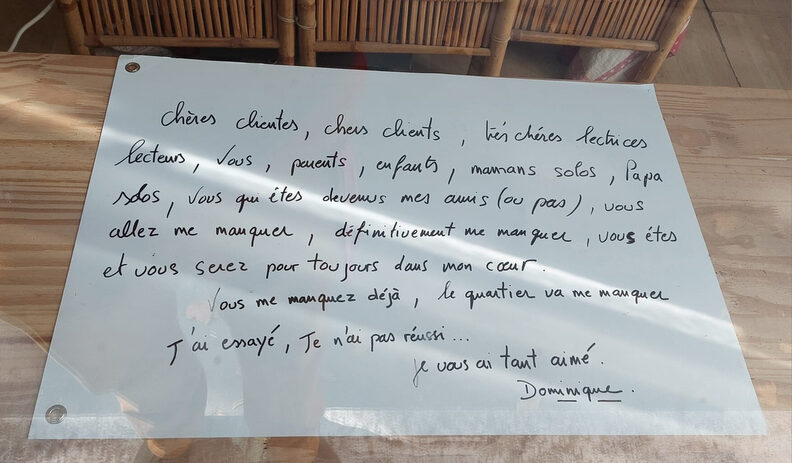 Chères clientes, chers clients, très chères lectrices
lecteurs, vous, parents, enfants, mamans solos, Papa
solos, vous qui êtes devenus mes amis (ou pas), vous
allez me manquer, définitivement me manquer, vous êtes
et vous serez pour toujours dans mon cœur.
Vous me manquez déjà, le quartier va me manquer
J'ai essayé, Je n'ai pas réussi...
Je vous ai tant aimé.
Dominique.